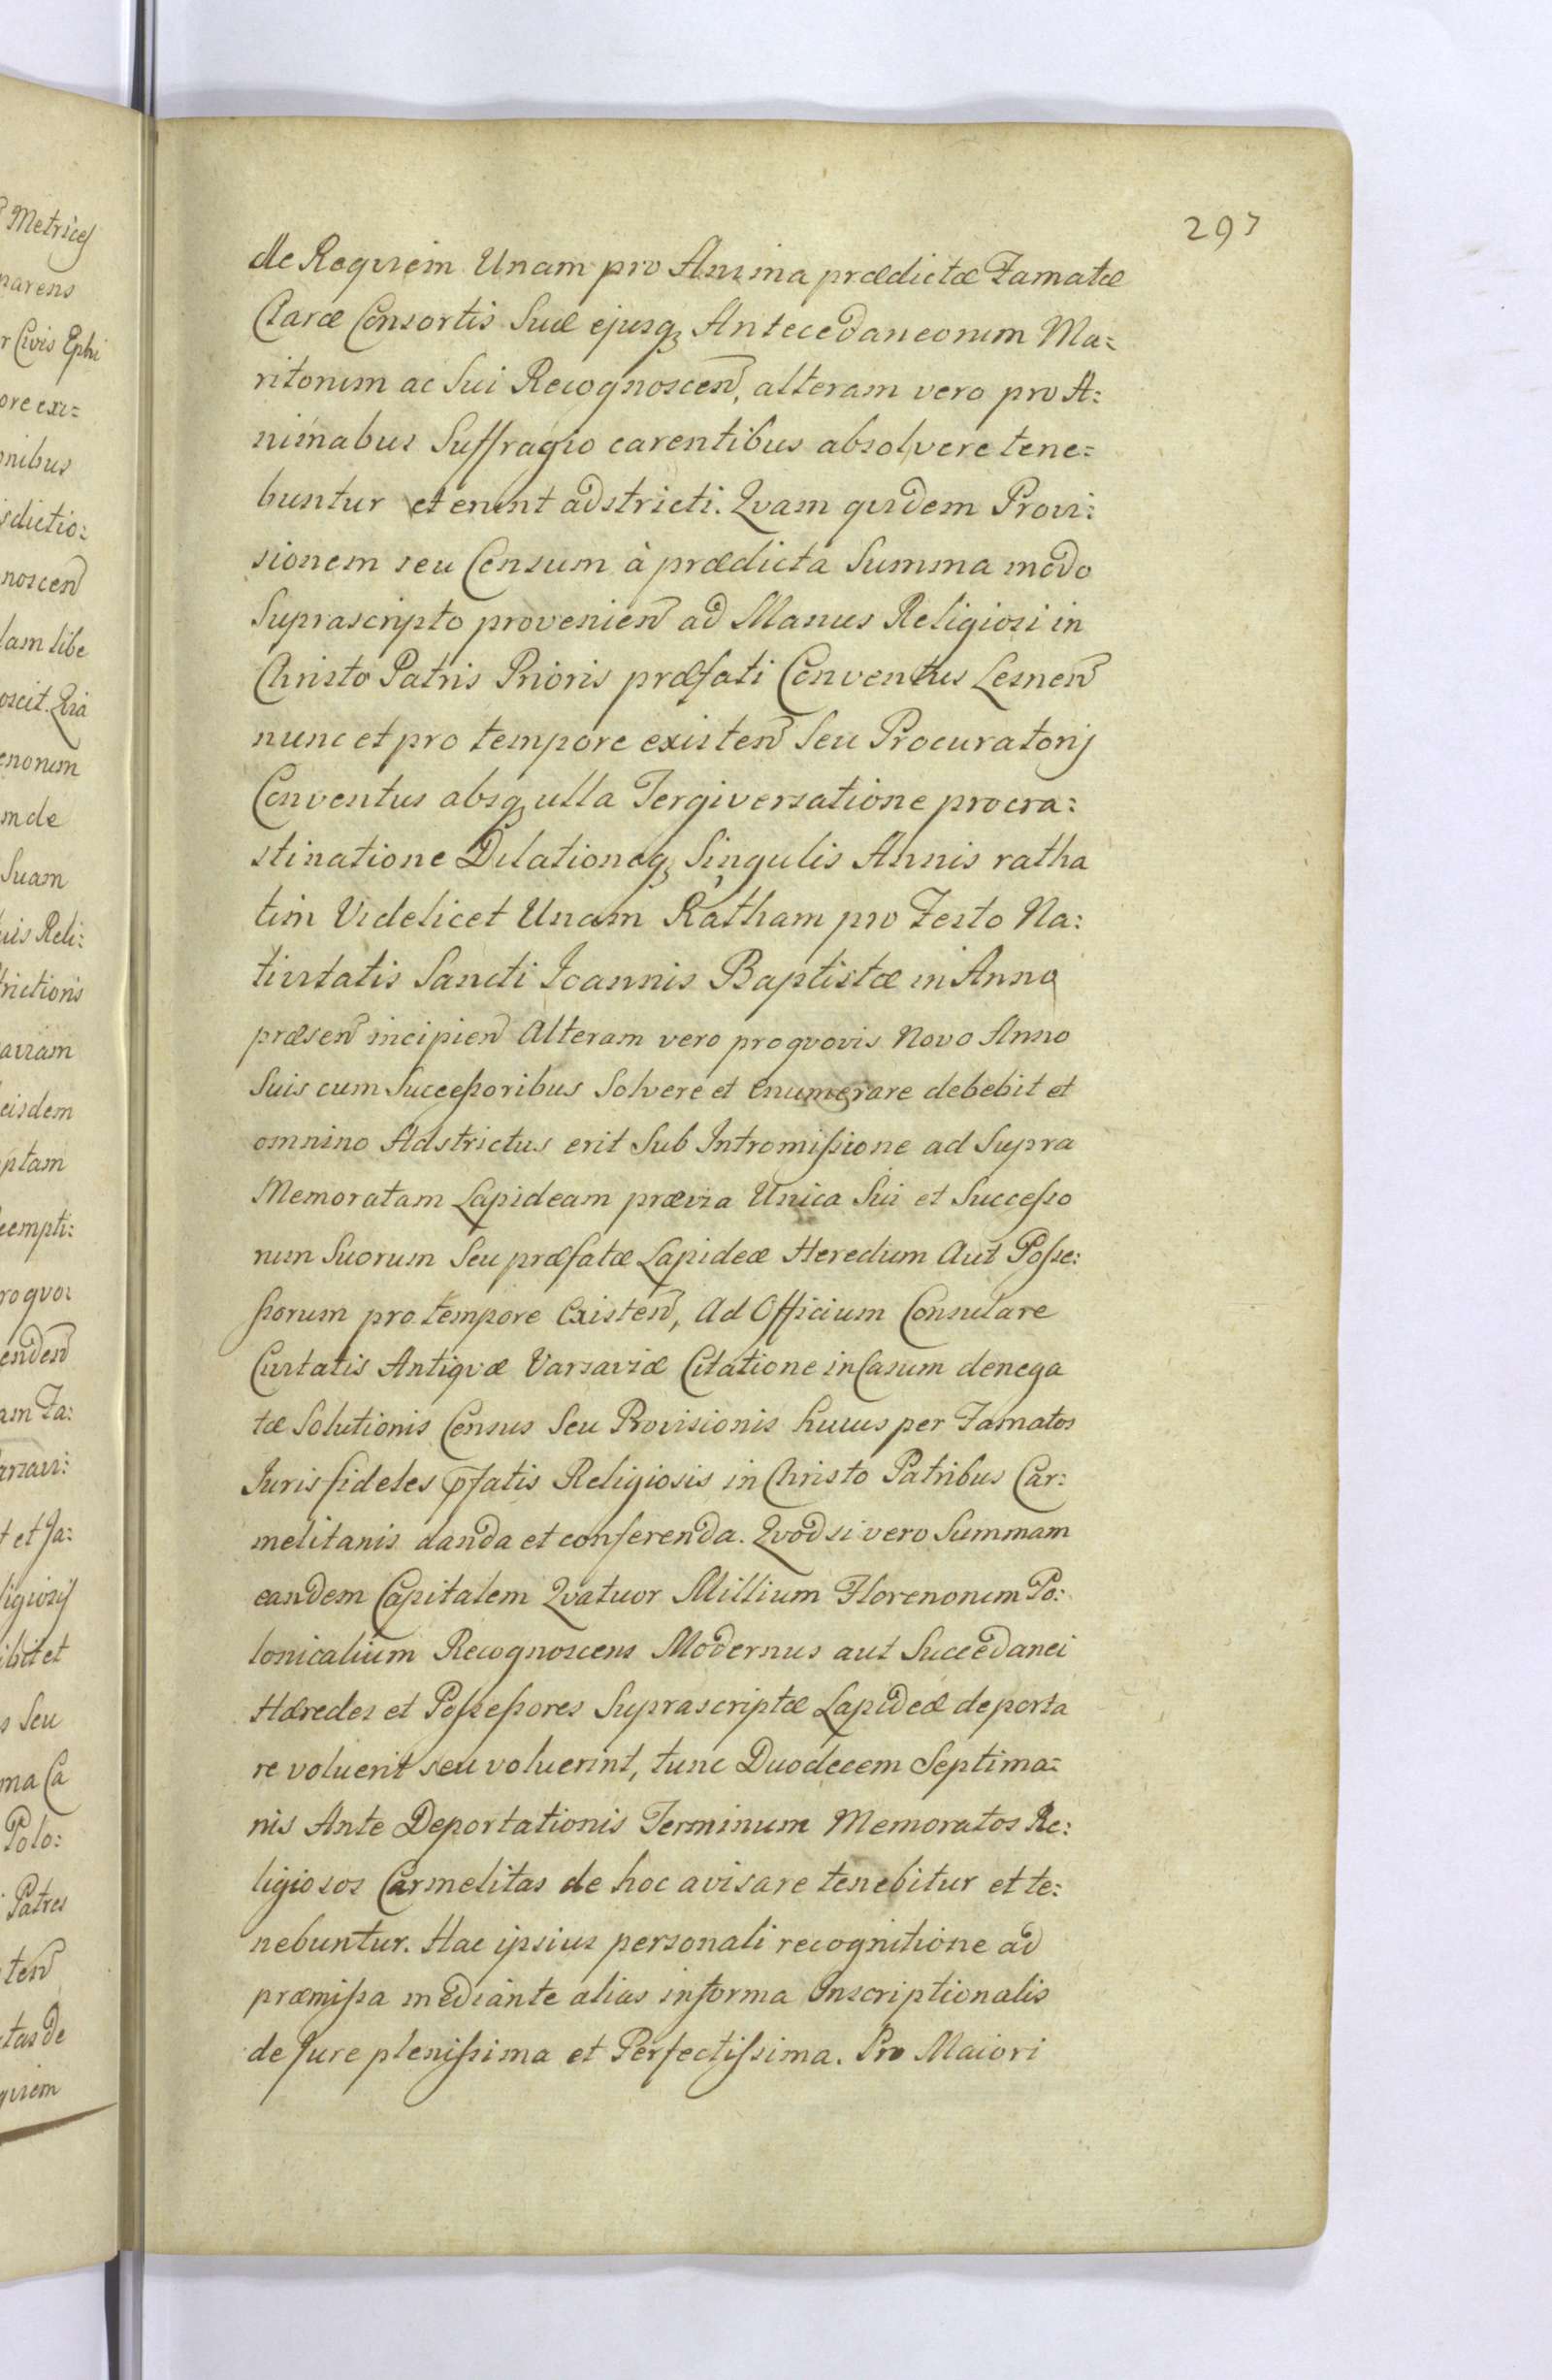 297
de Requiem Unam pro Anima prædictæ Famatæ
Claræ Consortis Suæ ejusq₃ Antecedaneorum Ma:
ritorum ac Sui Recognoscen̄, alteram vero pro A:
nimabus Suffragio carentibus absolvere tene=
buntur et erunt adstricti. Qvam qvidem Provi:
sionem seu Censum à prædicta Summa modo
Suprascripto provenien̄ ad Manus Religiosi in
Christo Patris Prioris præfati Conventus Lesnen̄
nunc et pro tempore existen̄ Seu Procuratorij
Conventus absq₃ ulla Tergiversatione procra:
stinatione Dilationeq₃ Singulis Annis ratha
tim Videlicet Unam Ratham pro Festo Na:
tivitatis Sancti Joannis Baptistæ in Anno
præsen̄ incipien̄ Alteram vero pro qvovis Novo Anno
Suis cum Successoribus Solvere et enumerare debebit et
omnino Adstrictus erit Sub Intromissione ad Supra
Memoratam Lapideam prævia Unica Sui et Successo
rum Suorum Seu præfatæ Lapideæ Heredum Aut Posse:
ssorum pro tempore Existen̄, Ad Officium Consulare
Civitatis Antiqvæ Varsaviæ Citatione in Casum denega
tæ Solutionis Census Seu Provisionis huius per Famatos
Juris fideles p̄fatis Religiosis in Christo Patribus Car:
melitanis danda et conferenda. Qvod si vero Summam
eandem Capitalem Qvatuor Millium Florenorum Po:
lonicalium Recognoscens Modernus aut Succedanei
Hæredes et Possessores Suprascriptæ Lapideæ deporta
re voluerit seu voluerint, tunc Duodecem Septima=
nis Ante Deportationis Terminum Memoratos Re:
ligiosos Carmelitas de hoc avisare tenebitur et te:
nebuntur. Hac ipsius personali recognitione ad
præmissa mediante alias in forma Inscriptionalis
de Jure plenissima et Perfectissima. Pro Maiori